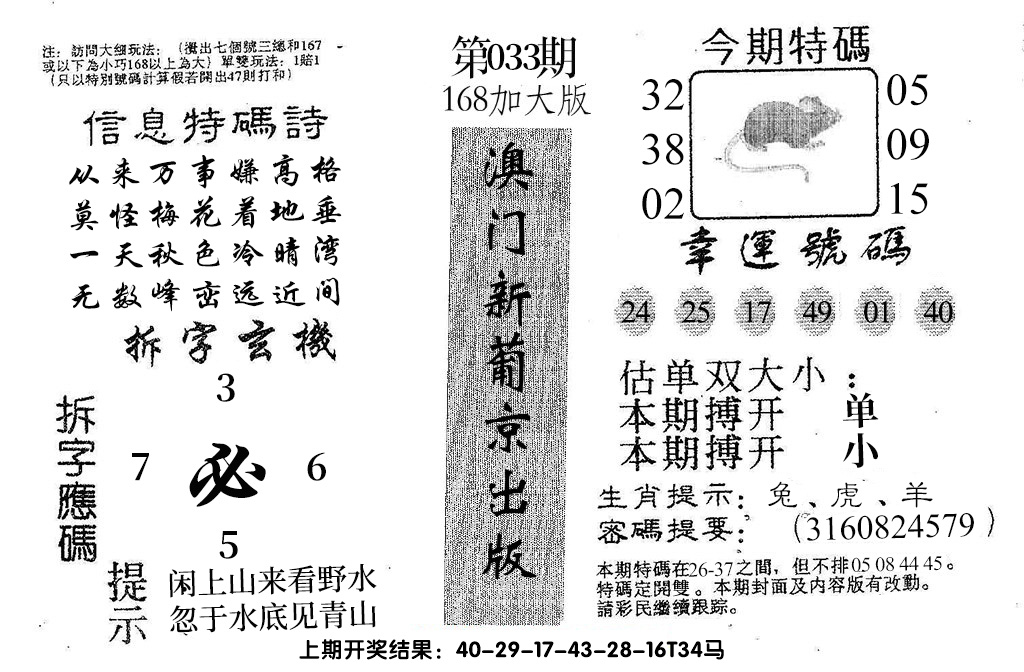 注：訪問大细玩法：（攪出七個號三總和167
或以下為小巧168以上為大）單雙玩法：1賠1
（只以特別號碼計算假若開出47則打和）
信息特碼詩
从来万事嫌高格
莫怪梅花着地垂
一天秋色冷晴湾
无数峰峦远近间
拆字玄機
拆字應碼
3
7 必 6
5
提示
闲上山来看野水
忽于水底见青山
第033期
168加大版
澳门新葡京出版
今期特碼
32 05
38 09
02 15
幸運號碼
24 25 17 49 01 40
估单双大小：
本期搏开 单
本期搏开 小
生肖提示：兔、虎、羊
密碼提要：（3160824579）
本期特碼在26-37之間，但不排05 08 44 45。
特碼定開雙。本期封面及内容版有改動。
請彩民繼續跟踪。
上期开奖结果：40-29-17-43-28-16T34马